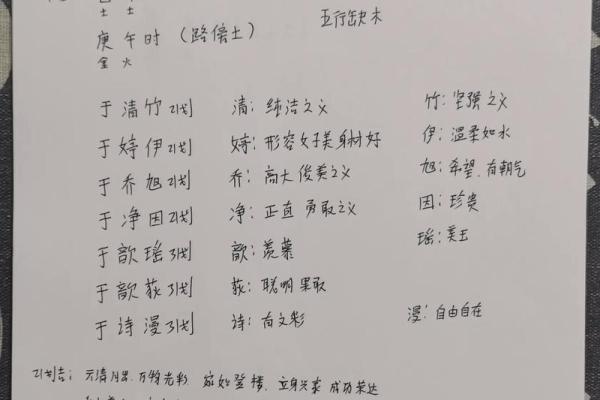 土 土
庚午时（路傍土） 五行缺木
金 火
于清竹 21划 清：纯洁之义 竹：坚强之义
于婷伊 21划 婷：形容女子美身材好 伊：温柔如水
于乔旭 21划 乔：高大俊美之义 旭：希望.有朝气
于净因 21划 净：正直勇敢之义 因：珍贵
于歆瑶 31划 歆：羡慕 瑶：美玉
于歆荻 31划 荻：聪明果敢
于诗漫 31划 诗：有文彩 漫：自由自在
21划吉：立身兴家 成功荣达